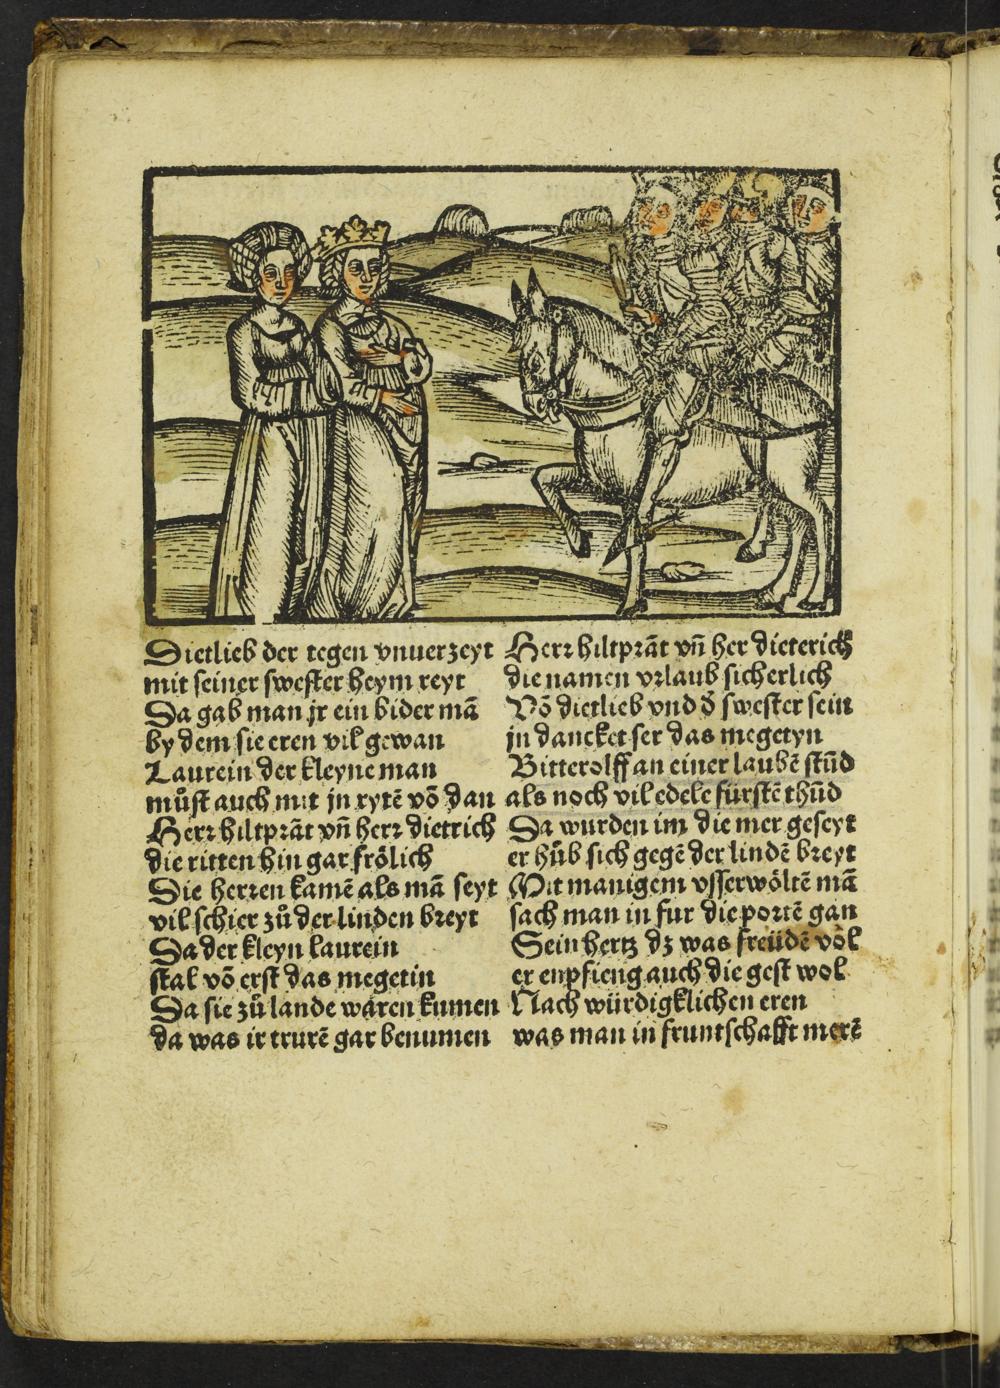 Dietlieb der tegen vnuerzeyt
mit seiner swester heym reyt
Da gab man jr ein bider mā
by dem sie eren vil gewan
Laurein der kleyne man
můst auch mit jn rytē vō dan
Herr hiltprāt vn̄ herr dietrich
die ritten hin gar frölich
Die herren kamē als mā seyt
vil schier zů der linden breyt
Da der kleyn laurein
stal vō erst das megetin
Da sie zů lande waren kumen
da was ir trurē gar benumen
Herr hiltprāt vn̄ her dieterich
die namen vrlaub sicherlich
Vō dietlieb vnd d̄ swester sein
jn dancket ser das megetyn
Bitterolff an einer laubē stūd
als noch vil edele fürstē thūd
Da wurden im die mer geseyt
er hůb sich gegē der lindē breyt
Mit manigem vsserwöltē mā
sach man in fur die portē gan
Sein hertz dz was freüdē vol
er enpfieng auch die gest wol
Nach würdigklichen eren
was man in fruntschafft merē